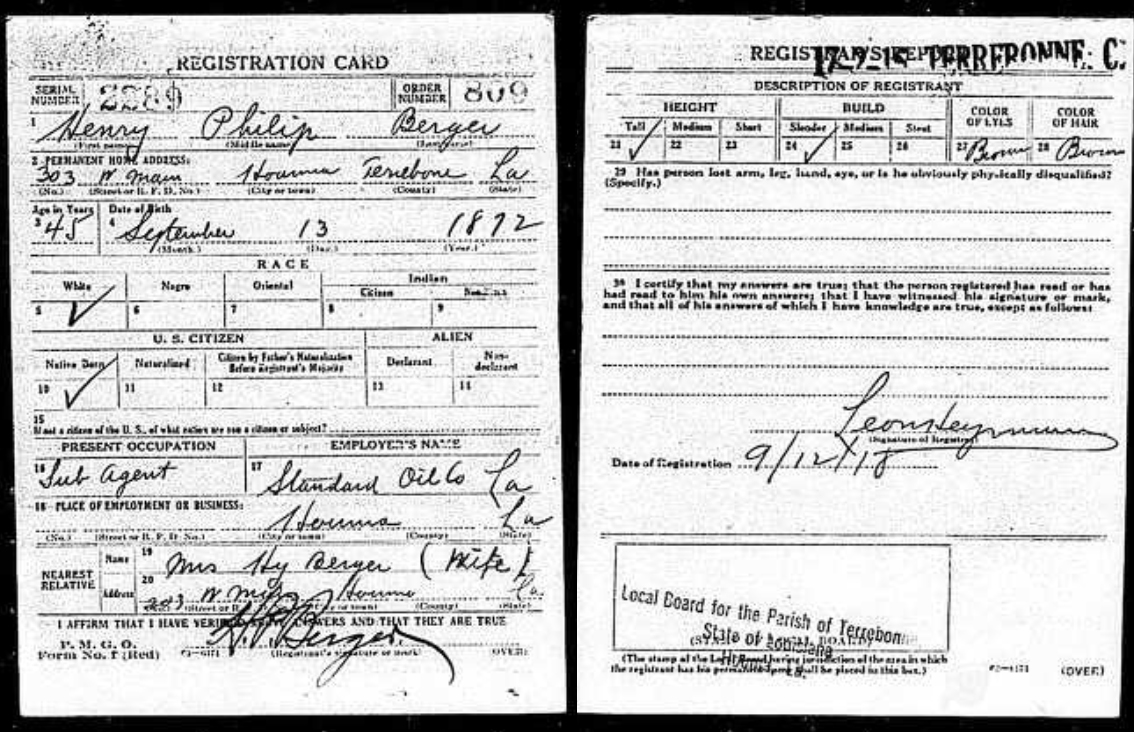 REGISTRATION CARD
SERIAL NUMBER 2289 ORDER NUMBER 809
1 Henry Philip Berger
(First name) (Middle name) (Last name)
2 PERMANENT HOME ADDRESS:
303 W Main Houma Terrebone La
(No.) (Street or R. F. D. No.) (City or town) (County) (State)
Age in Years Date of Birth
3 45 4 September 13 1872
(Month.) (Day.) (Year.)
RACE
White Negro Oriental Indian
Citizen
5 6 7 8 9
U. S. CITIZEN ALIEN
Native Born Naturalized Citizen by Father's Naturalization Before Registrant's Majority Declarant Non-declarant
10 11 12 13 14
15
If not a citizen of the U. S., of what nation are you a citizen or subject?
PRESENT OCCUPATION EMPLOYER'S NAME
16 Sub Agent 17 Standard Oil Co La
18 PLACE OF EMPLOYMENT OR BUSINESS:
Houma La
(No.) (Street or R. F. D. No.) (City or town) (County) (State)
NEAREST RELATIVE Name 19 Mrs Hy Berger (Wife)
Address 20 303 W Main Houma La
(No.) (Street or R. F. D. No.) (City or town) (County) (State)
I AFFIRM THAT I HAVE VERIFIED ABOVE ANSWERS AND THAT THEY ARE TRUE
P. M. G. O.
Form No. 1 (Red) H. P. Berger
(Registrant's signature or mark) (OVER)
REGISTRAR'S REPORT
17-7-15 TERREBONNE. C.
DESCRIPTION OF REGISTRANT
HEIGHT BUILD COLOR OF EYES COLOR OF HAIR
Tall Medium Short Slender Medium Stout
21 22 23 24 25 26 27 Brown 28 Brown
29 Has person lost arm, leg, hand, eye, or is he obviously physically disqualified?
(Specify.)
30 I certify that my answers are true; that the person registered has read or has
had read to him his own answers; that I have witnessed his signature or mark,
and that all of his answers of which I have knowledge are true, except as follows:
Leon Heymann
(Signature of Registrar)
Date of Registration 9/12/18
Local Board for the Parish of Terrebonne
State of Louisiana
(STAMP OF LOCAL BOARD)
(The stamp of the Local Board having jurisdiction of the area in which
the registrant has his permanent home shall be placed in this box.)
(OVER)